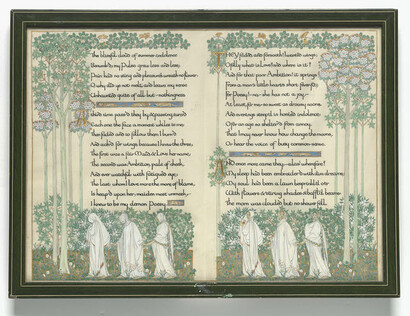 The blissful cloud of summer indolence
Benumb'd my Pulse grew less and less;
Pain had no sting and pleasure's wreath no flower.
O why did ye not melt, and leave my sense
Unhaunted quite of all but – nothingness
A third time pass'd they by & passing turn'd
Each one the face a moment whiles to me
Then faded and to follow them I burn'd
And ached for wings because I knew the three:
The first was a fair Maid & Love her name;
The second was Ambition, pale of cheek,
And ever watchful with fatigued eye;
The last whom I love more the more of blame
Is heap'd upon her, maiden most unmeek,–
I knew to be my demon Poesy
They faded and forsooth I wanted wings:
O folly what is Love & and where is it?
And for that poor Ambition! it springs
From a man's little hearts short fever fit;
For Poesy! no – she has not a joy –
At least for me – so sweet as drowsy noons,
And evenings steep'd in honied indolence
O for an age so shelter'd from annoy,
That I may never know how change the moons,
Or hear the voice of busy common-sense.
And once more came they – alas! wherefore?
My sleep had been embroider'd with dim dreams;
My soul had been a lawn besprinkled o'er
With flowers & stirring shades & baffled beams
The morn was clouded but no shower fell,